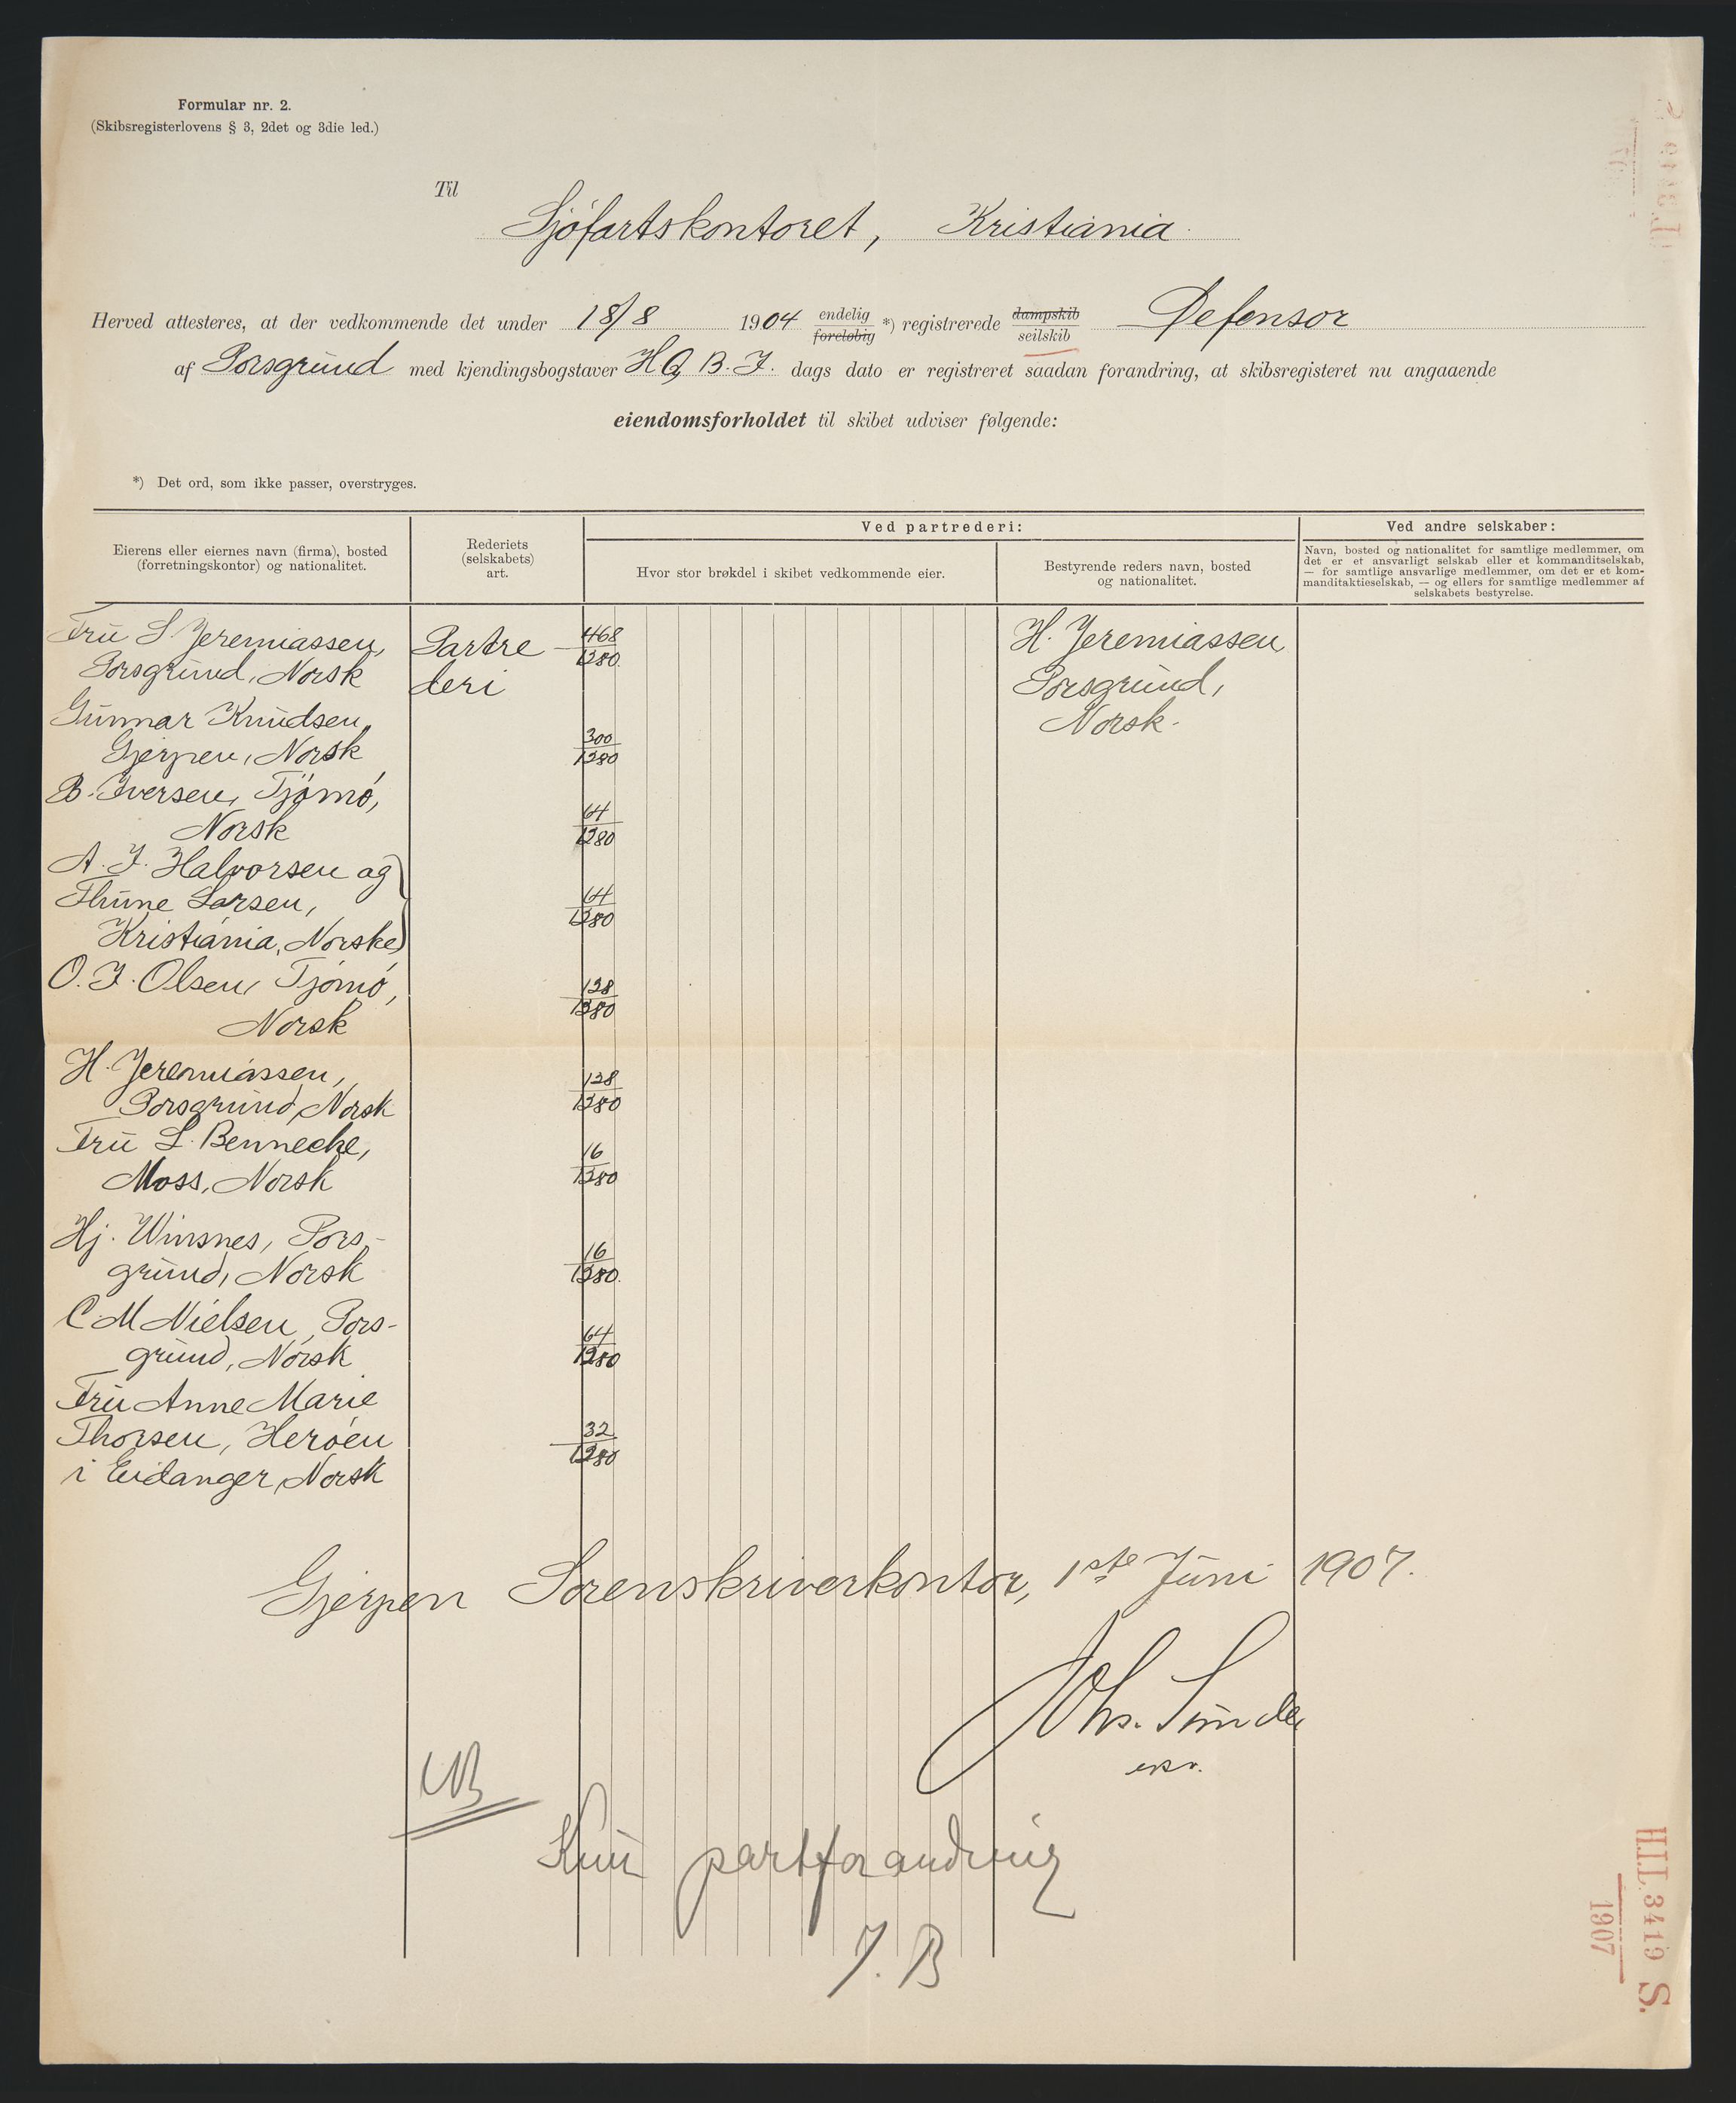 Formular nr. 2.
(Skibsregisterlovens § 3, 2det og 3die led.)
Til
Sjöfartskontoret, Kristiania
Herved attesteres, at der vedkommende det under 18/8 1904 endelig foreløbig *) registrerede dampskib seilskib Defensor
af Porsgrund med kjendingsbogstaver H Q B. F. dags dato er registreret saadan forandring, at skibsregisteret nu angaaende
eiendomsforholdet til skibet udviser følgende:
*) Det ord, som ikke passer, overstryges.
Eierens eller eiernes navn (firma), bosted
(forretningskontor) og nationalitet.
Rederiets
(selskabets)
art.
Ved partrederi:
Hvor stor brøkdel i skibet vedkommende eier.
Bestyrende reders navn, bosted
og nationalitet.
Ved andre selskaber:
Navn, bosted og nationalitet for samtlige medlemmer, om
det er et ansvarligt selskab eller et kommanditselskab,
— for samtlige ansvarlige medlemmer, om det er et kom-
manditaktieselskab, — og ellers for samtlige medlemmer af
selskabets bestyrelse.
Fru S Jeremiassen, Partre- 468/1280 H. Jeremiassen
Porsgrund, Norsk deri Porsgrund,
Gunnar Knudsen, Norsk.
Gjerpen, Norsk 300/1280
B. Iversen, Tjömö,
Norsk 64/1280
A. F. Halvorsen og
Thune Larsen, 64/1280
Kristiania, Norske
O. F. Olsen, Tjömö, 128/1280
Norsk
H. Jeremiassen, 128/1280
Porsgrund, Norsk
Fru L. Bennecke, 16/1280
Moss, Norsk
Hj. Winsnes, Pors- 16/1280
grund, Norsk
C M Nielsen, Pors- 64/1280
grund, Norsk
Fru Anne Marie
Thorsen, Heröen 32/1280
i Eidanger, Norsk
Gjerpen Sorenskriverkontor, 1ste Juni 1907.
Joh. Sunde
NB
Kun partforandring
J. B
H.I.I. 3419 S.
1907